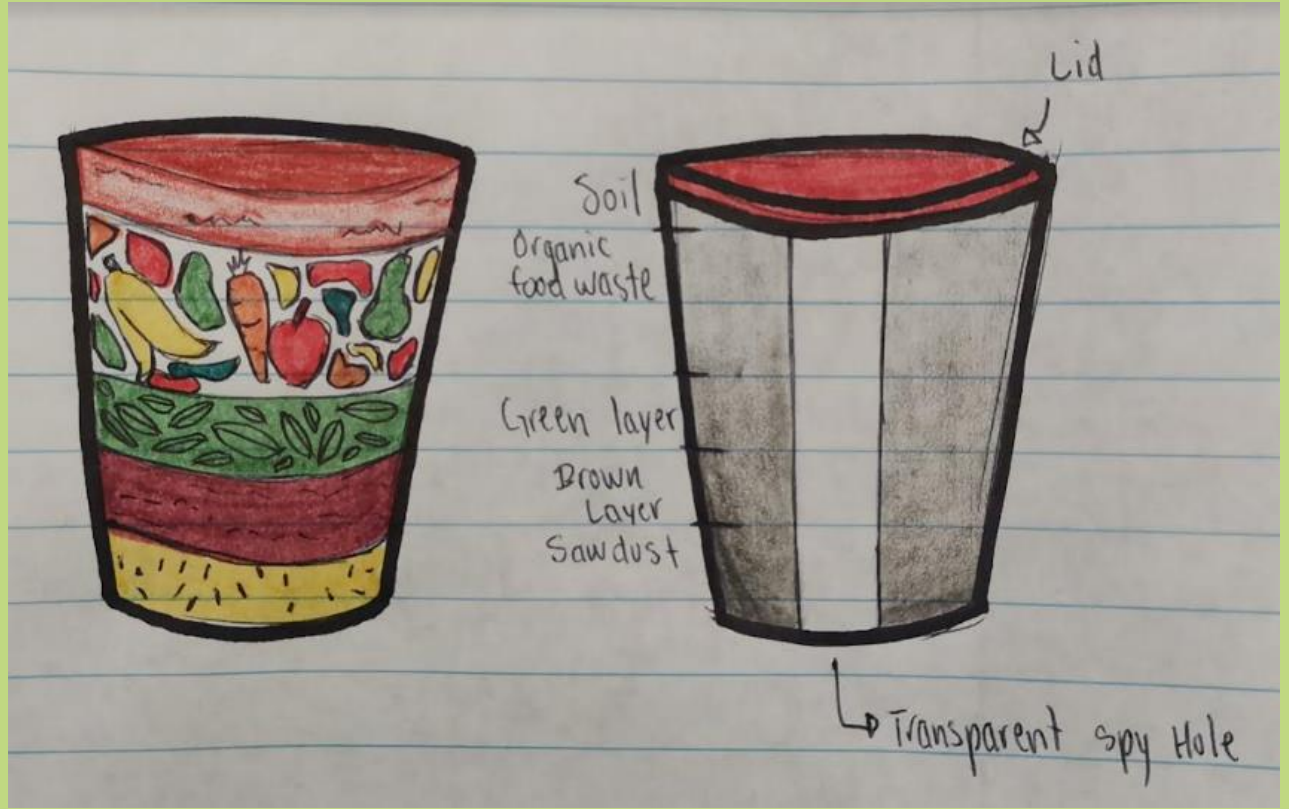 Lid
Soil
Organic
food waste
Green layer
Brown
Layer
Sawdust
Transparent spy Hole